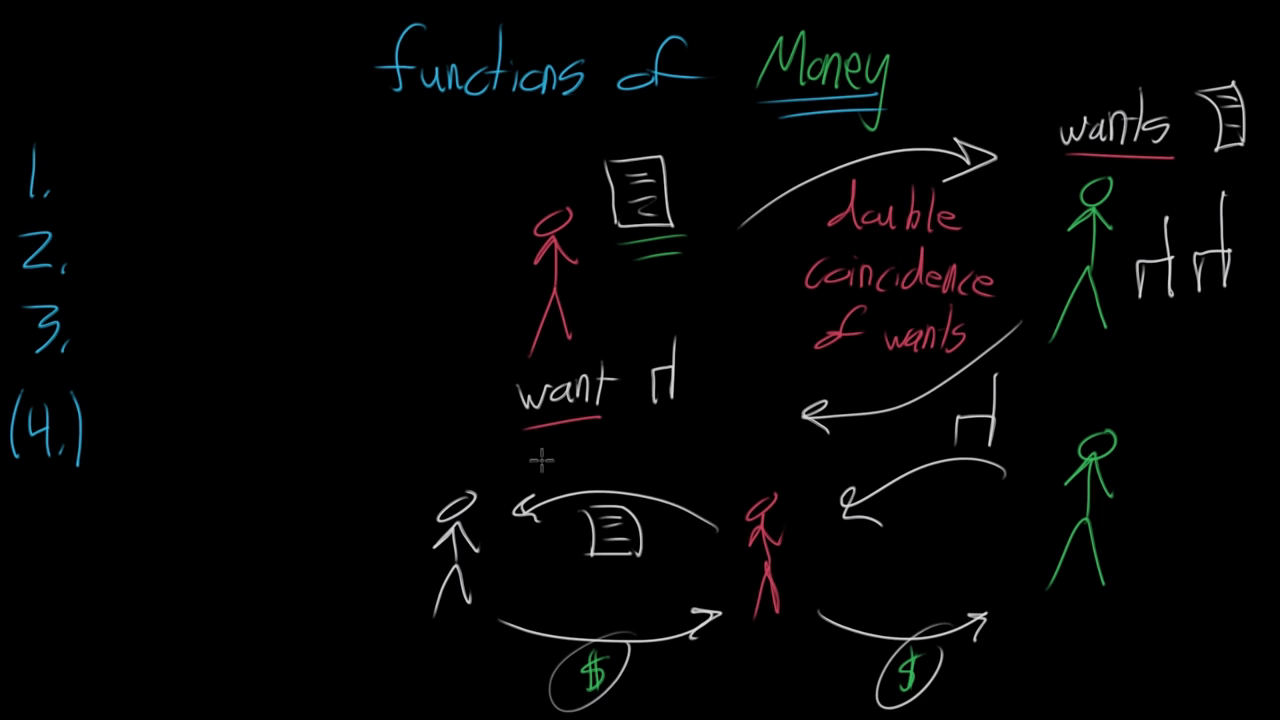 functions of Money
wants
1.
double
2.
coincidence
3.
of wants
want
(4.)
$ $